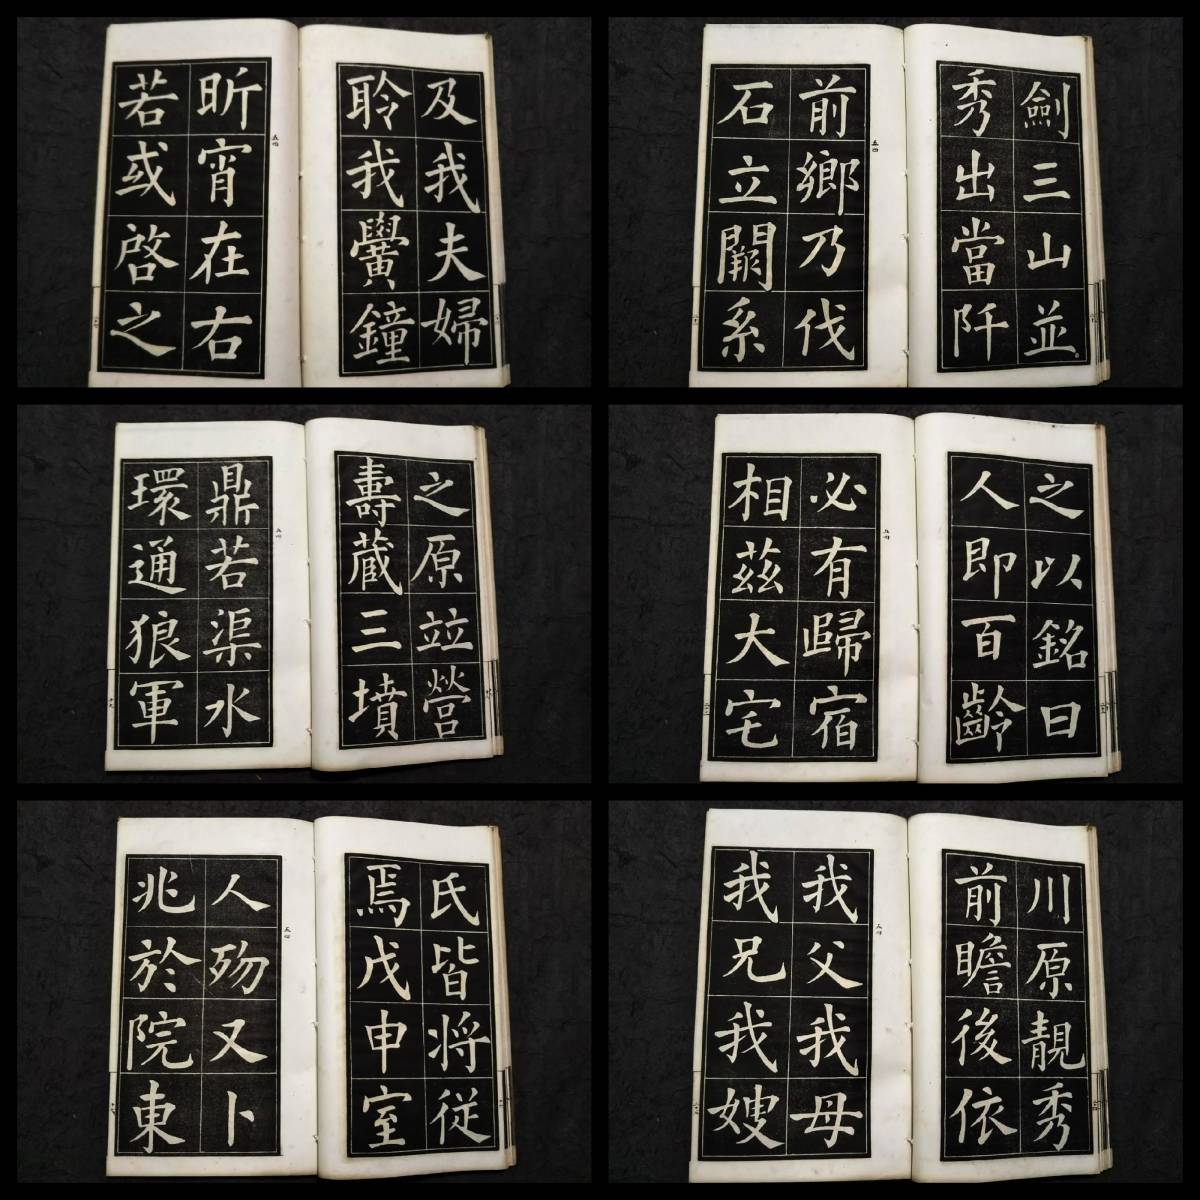 及我夫婦
聆我黌鐘
昕宵在右
若或啓之
劍三山並
秀出當阡
前鄉乃伐
石立闕系
之原竝營
壽蔵三墳
鼎若渠水
環通狼軍
之以銘曰
人即百齡
必有歸宿
相茲大宅
氏皆将從
焉戊申室
人歾又卜
兆於院東
川原靚秀
前瞻後依
我父我母
我兄我嫂